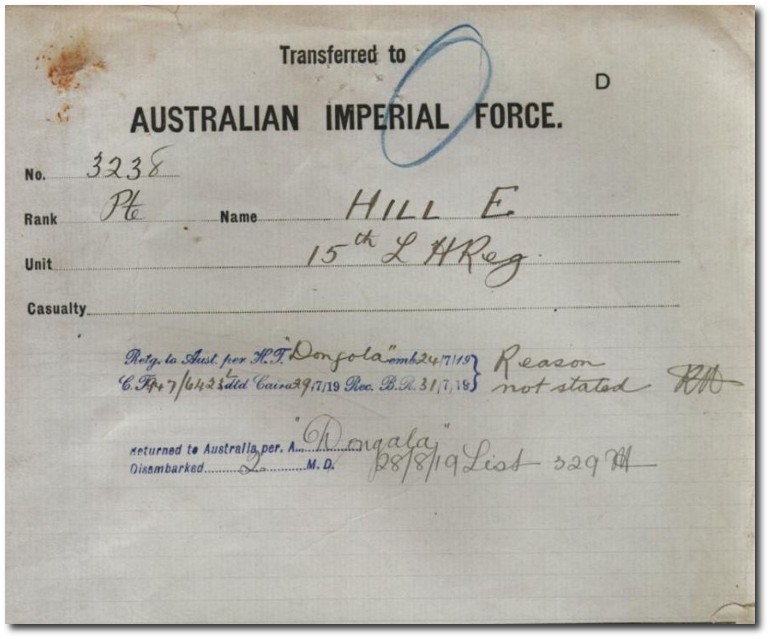 Transferred to
D
AUSTRALIAN IMPERIAL FORCE.
No. 3238
Rank Pte Name HILL E
Unit 15th L H Reg.
Casualty
Retg. to Aust. per H.T. "Dongola" emb 24/7/19 } Reason
dtd Cairo 29/7/19 Rec. B.R. 31/7/19 } not stated
Returned to Australia per. A... "Dongala"
Disembarked 2 M.D. 28/8/19 List 329